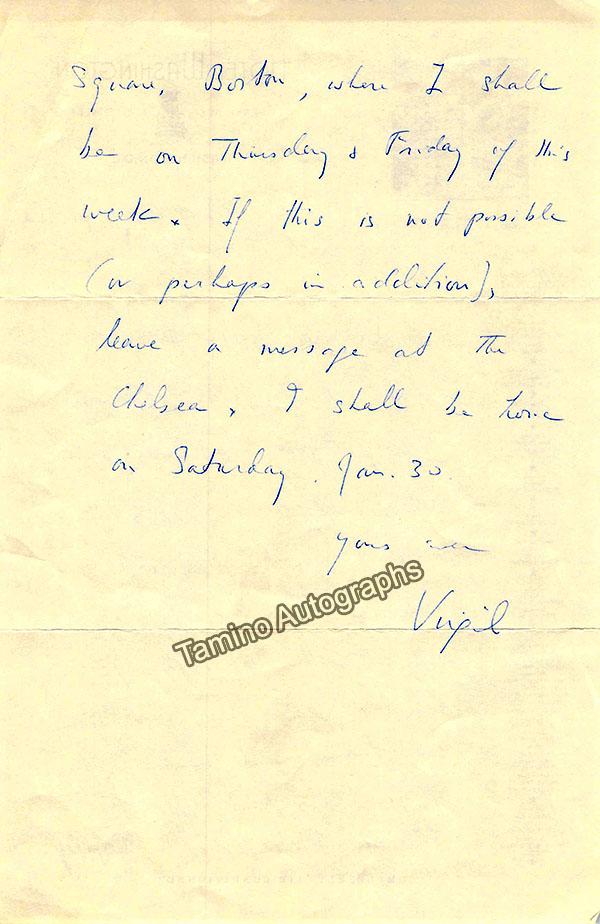 Square, Boston, where I shall
be on Thursday & Friday of this
week. If this is not possible
(or perhaps in addition),
leave a message at the
Chelsea. I shall be home
on Saturday. Jan. 30.
Yours ever
Virgil
Tamino Autographs